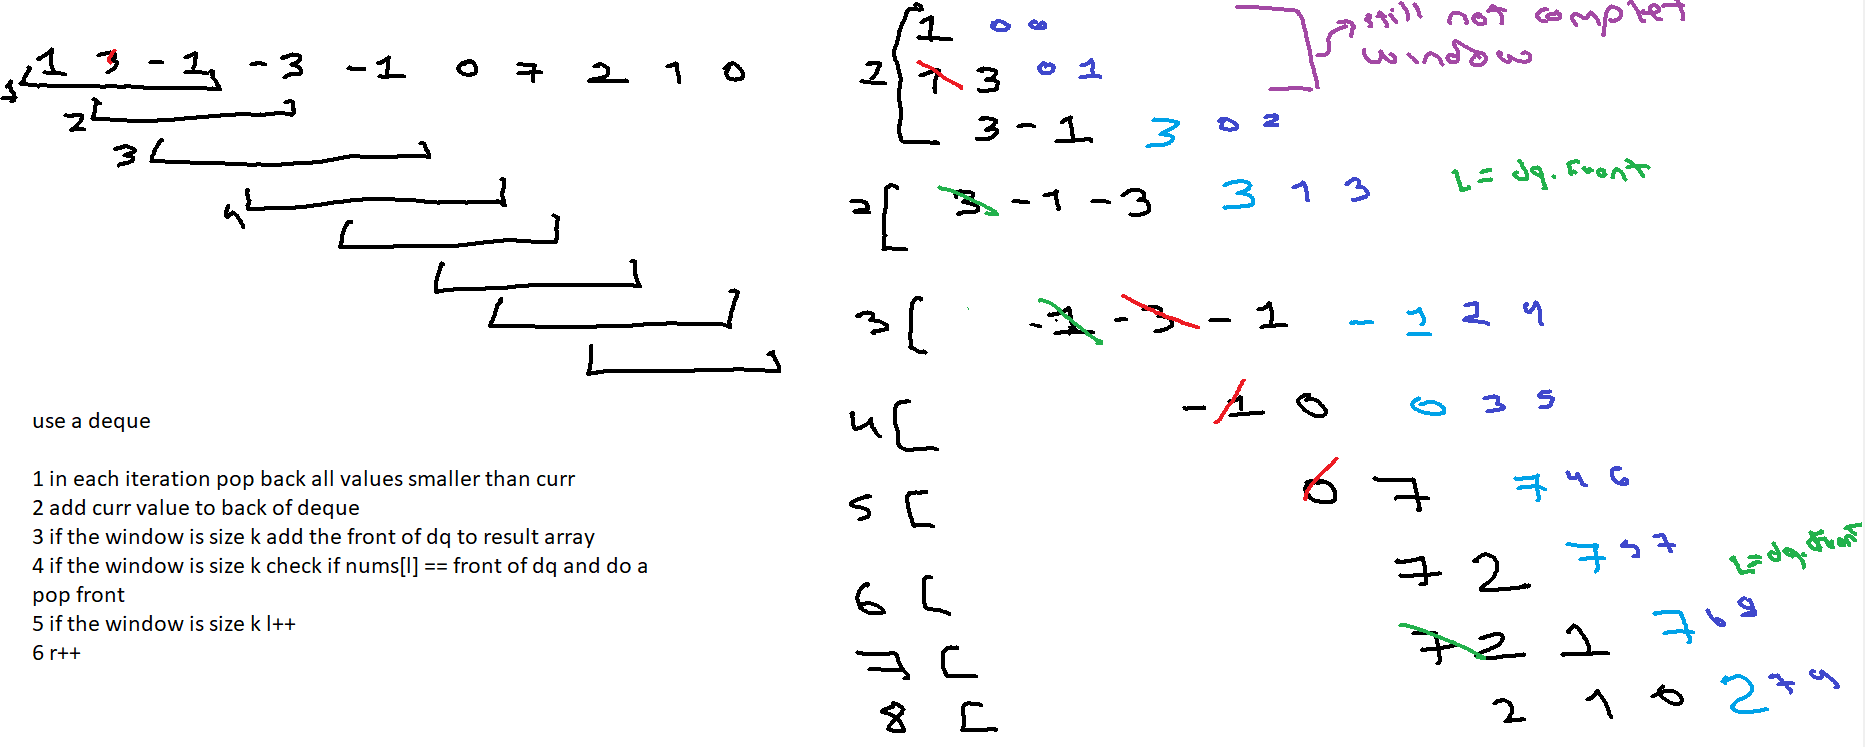 1 3 -1 -3 -1 0 7 2 1 0
1
2
3
4
use a deque
1 in each iteration pop back all values smaller than curr
2 add curr value to back of deque
3 if the window is size k add the front of dq to result array
4 if the window is size k check if nums[l] == front of dq and do a
pop front
5 if the window is size k l++
6 r++
1 0 0
still not complet
window
2 1 3 0 1
3 -1 3 0 2
2 3 -1 -3 3 1 3
L = dq.front
3 -1 -3 -1 -1 2 4
4 -1 0 0 3 5
5 0 7 7 4 6
6 7 2 7 5 7
L=dq.front
7 7 2 1 7 6 8
8 2 1 0 2 7 9